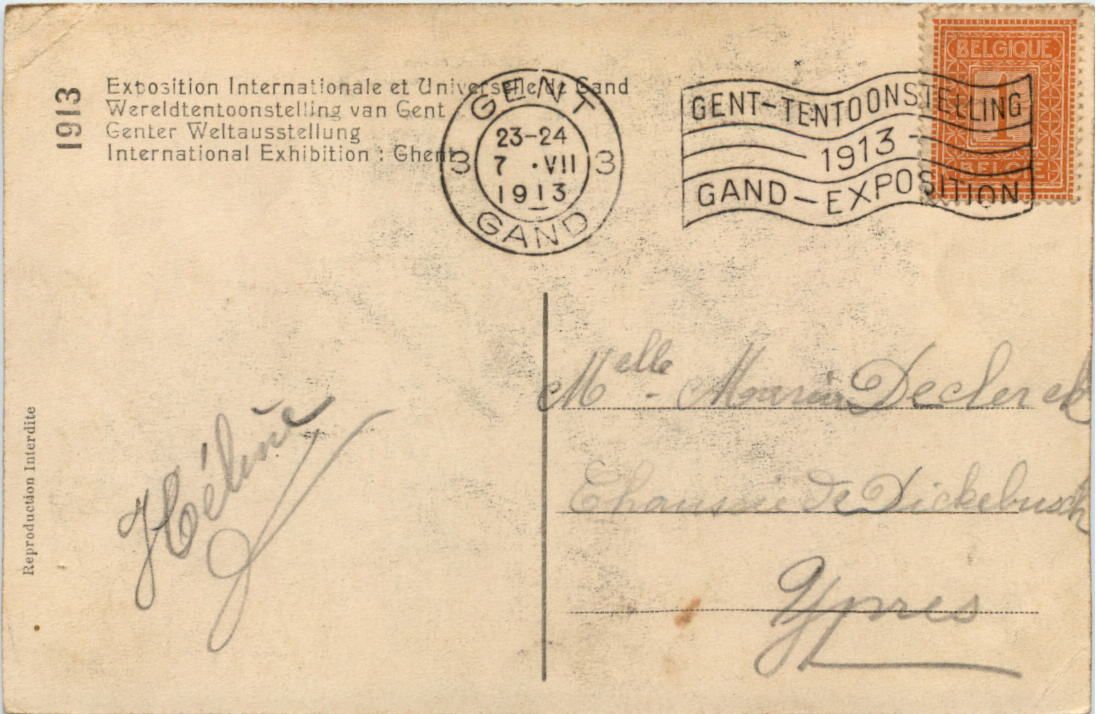 1913
Exposition Internationale et Universelle de Gand
Wereldtentoonstelling van Gent
Genter Weltausstellung
International Exhibition : Ghent
GENT
3 23-24 3
7 · VII
1913
GAND
GENT-TENTOONSTELLING
1913
GAND-EXPOSITION
BELGIQUE
1
BELGIË
Reproduction Interdite
Hélène
Melle - Maria Declerck
Chaussée de Dickebusch
Ypres